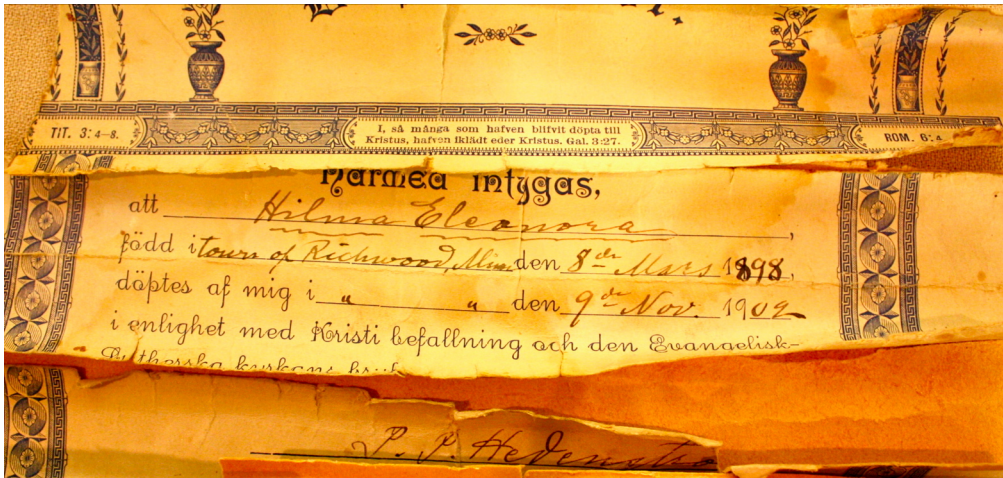 TIT. 3: 4–8.
I, så många som hafven blifvit döpta till
Kristus, hafven iklädt eder Kristus. Gal. 3:27.
ROM. 6: 4
Härmed intygas,
att Hilma Eleonora,
född i town of Richwood, Minn den 8de Mars 1898,
döptes af mig i " " den 9de Nov. 1902
i enlighet med Kristi befallning och den Evangelisk-
Lutherska kyrkans bruk
P. P. Hedenstro